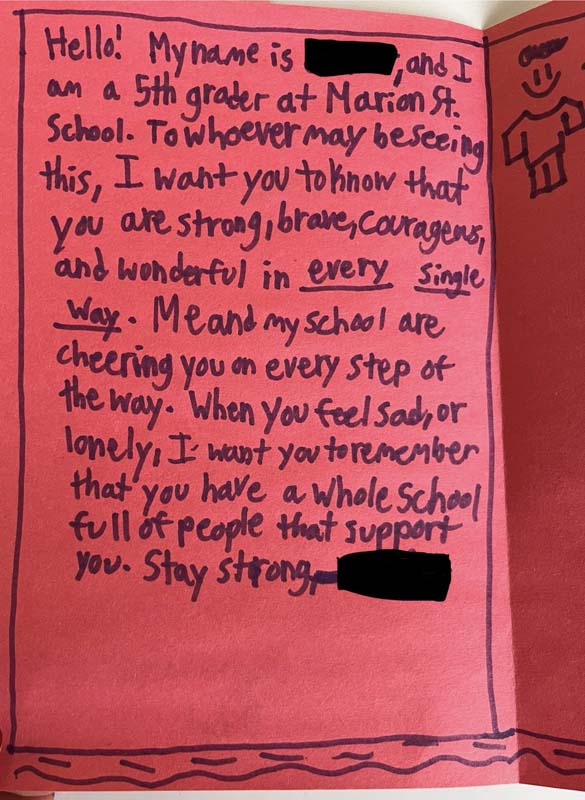 Hello! My name is , and I
am a 5th grader at Marion St.
School. To whoever may be seeing
this, I want you to know that
you are strong, brave, couragens,
and wonderful in every single
way. Me and my school are
cheering you on every step of
the way. When you feel sad, or
lonely, I want you to remember
that you have a whole school
full of people that support
you. Stay strong, -